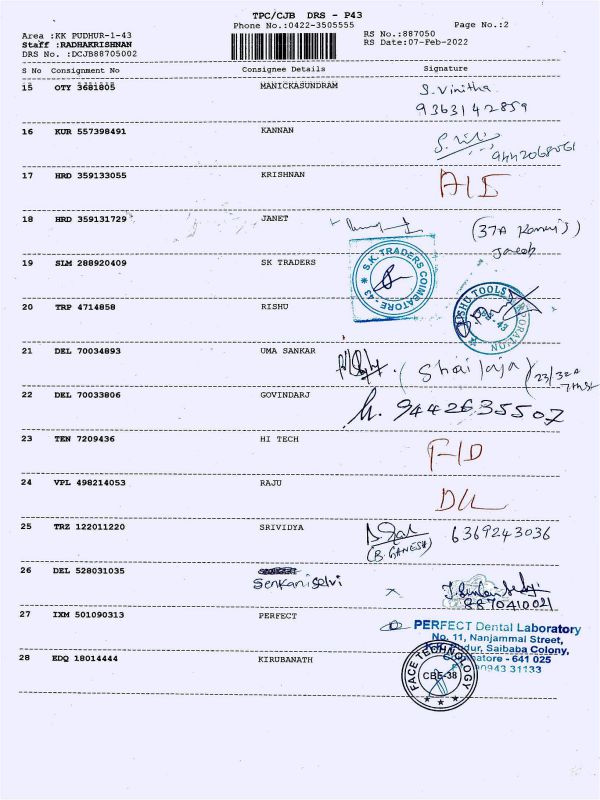 TPC/CJB DRS - P43
Phone No.:0422-3505555
Page No.:2
Area :KK PUDHUR-1-43
RS No.:887050
Staff :RADHAKRISHNAN
RS Date:07-Feb-2022
DRS No. :DCJB88705002
S No Consignment No Consignee Details Signature
15 OTY 3681805 MANICKASUNDRAM S. Vinitha
9363142859
16 KUR 557398491 KANNAN
17 HRD 359133055 KRISHNAN
18 HRD 359131729 JANET (37A
Jacob
19 SLM 288920409 SK TRADERS S.K. TRADERS COIMBATORE - 43
20 TRP 4714858 RISHU
21 DEL 70034893 UMA SANKAR (Shailaja) (23/32A
22 DEL 70033806 GOVINDARJ 9442635507
23 TEN 7209436 HI TECH
24 VPL 498214053 RAJU D/L
25 TRZ 122011220 SRIVIDYA 6369243036
(B. GANESH)
26 DEL 528031035 Senkaniselvi
8870410021
27 IXM 501090313 PERFECT PERFECT Dental Laboratory
No. 11, Nanjammal Street,
Saibaba Colony,
641 025
90943 31133
28 EDQ 18014444 KIRUBANATH FACE TECHNOLOGY
CBE-38